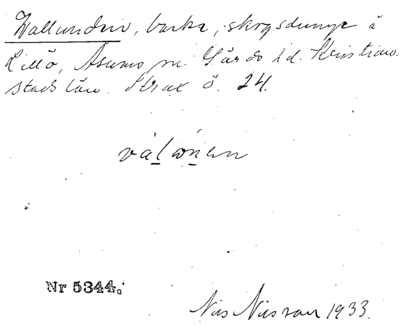 Wallunden, backe, skogsdunge å
Lillö, Åsums sn. Gärds hd. Kristian-
stads län. Strax ö. 24.
vålönen
Nr 5344.
Nils Nilsson 1933.